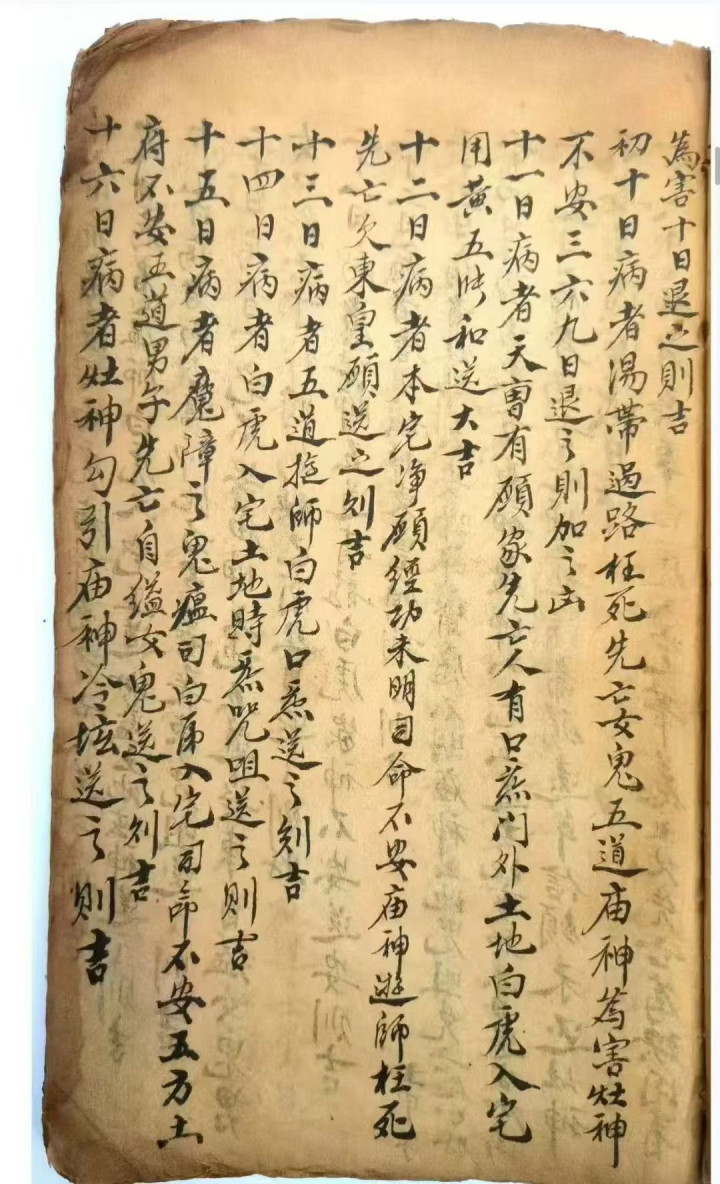 為害十日退之則吉
初十日病者湯帶過路枉死先亡女鬼五道庙神為害灶神
不安三六九日退之則加之凶
十一日病者天曹有願家先亡人有口惹门外土地白虎入宅
用黄五 和送大吉
十二日病者本宅净願經功未明司命不安庙神遊師枉死
先亡欠東皇願送之则吉
十三日病者五道 師白虎口惹送之则吉
十四日病者白虎入宅土地時惹咒咀送之則吉
十五日病者魔障之鬼瘟司白虎入宅司命不安五方土
府不安五道男子先亡自縊女鬼送之则吉
十六日病者灶神勾引庙神冷坛送之則吉